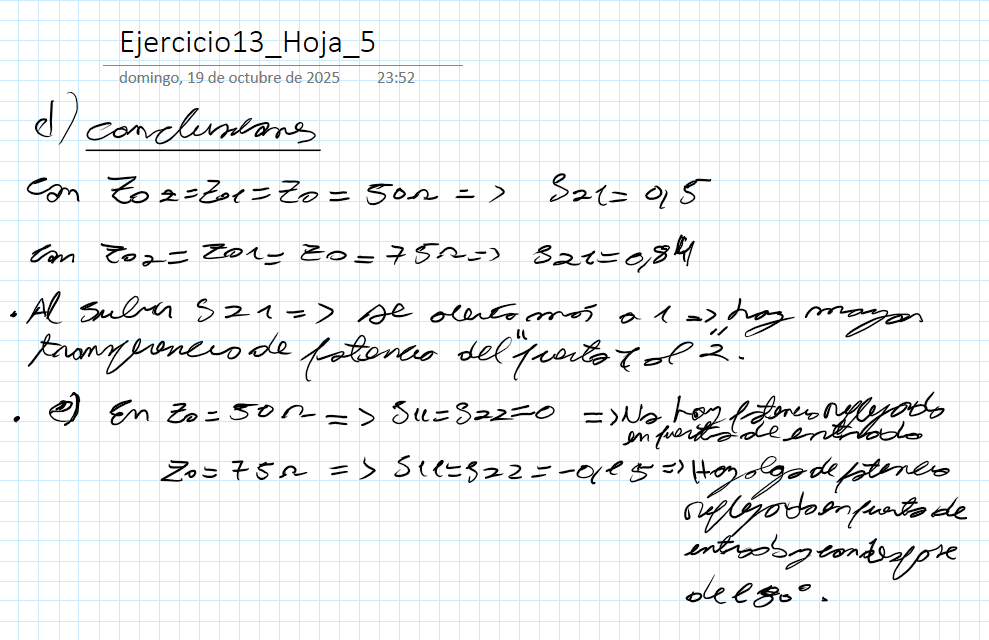 Ejercicio13_Hoja_5
domingo, 19 de octubre de 2025 23:52
d) conclusiones
Con Z02=Z01=Z0=50Ω => S21=0,5
Con Z02=Z01=Z0=75Ω=> S21=0,84
. Al subir S21=> se acerca más a 1 => hay mayor
transferencia de potencia del "puerto 1 al 2".
. e) En Z0=50Ω => S11=S22=0 => No hay potencia reflejada
en puerta de entrada
Z0=75Ω => S11=S22=-0,15 => Hay algo de potencia
reflejada en puerta de
entrada y con desfase
de 180°.